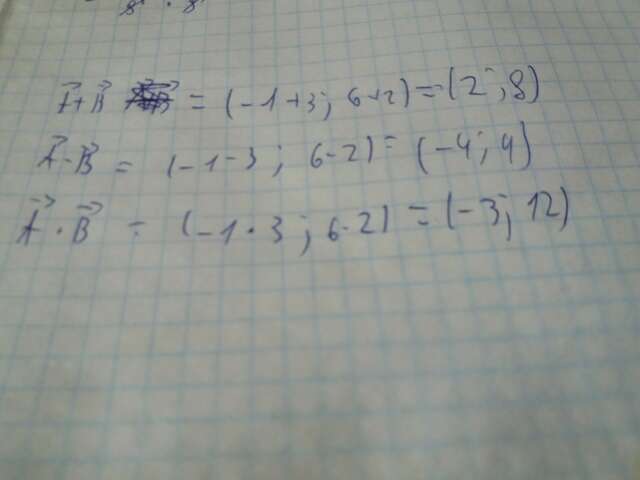 8 · 8
A⃗+B⃗ = (-1+3; 6+2) = (2; 8)
A⃗-B⃗ = (-1-3; 6-2) = (-4; 4)
A⃗·B⃗ = (-1·3; 6·2) = (-3; 12)